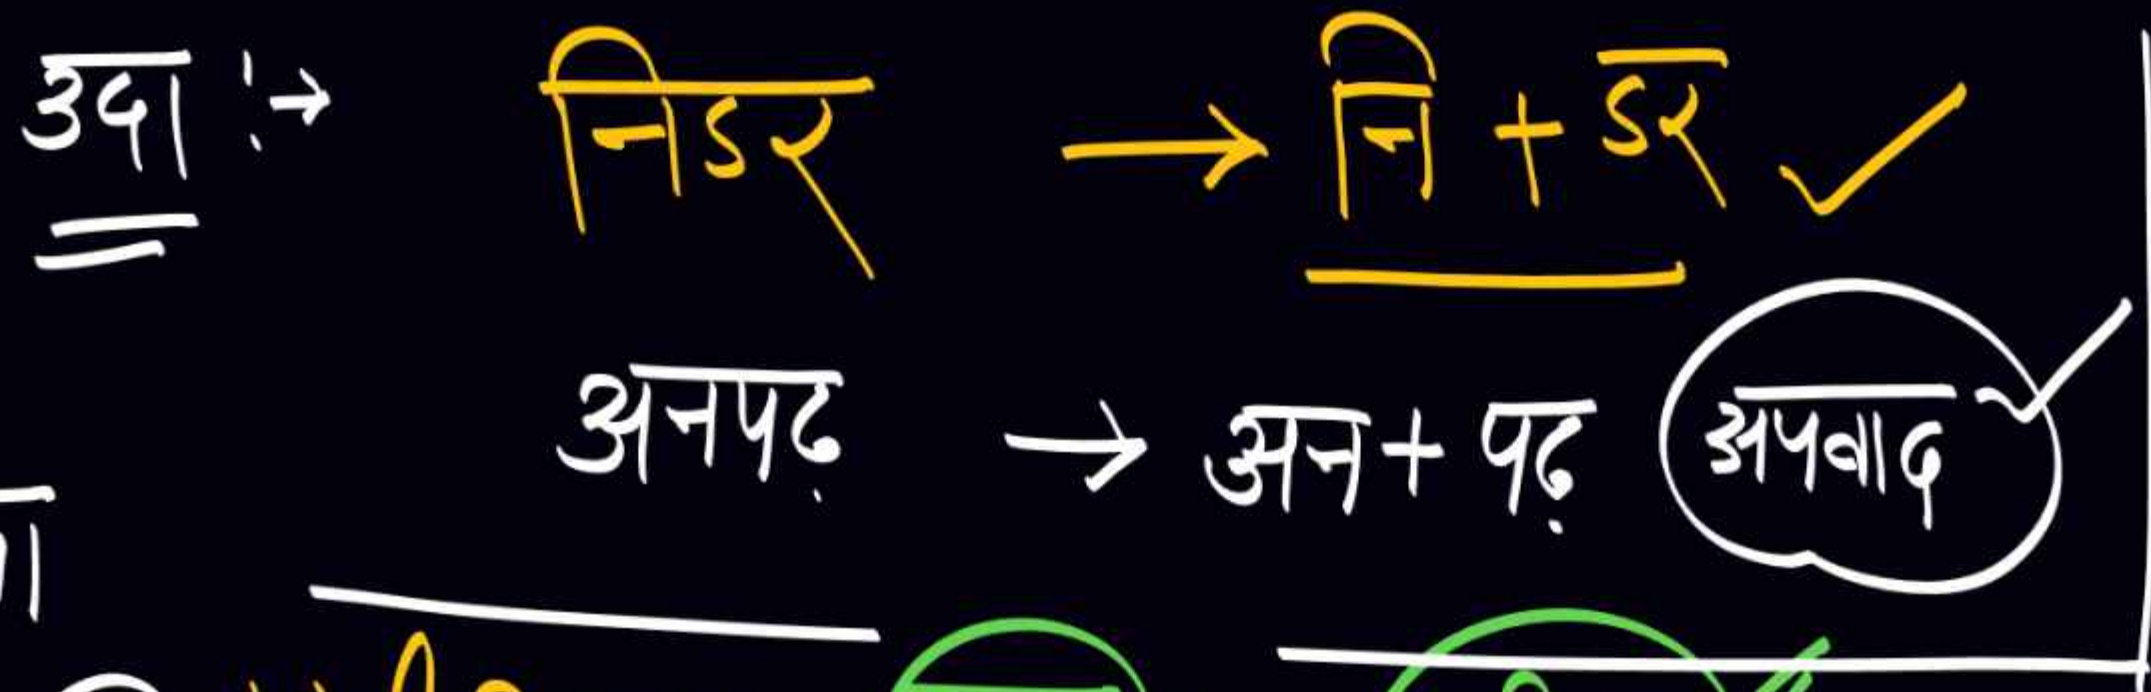 उदा :→ निडर → नि + डर ✓
अनपढ़ → अन + पढ़ अपवाद ✓